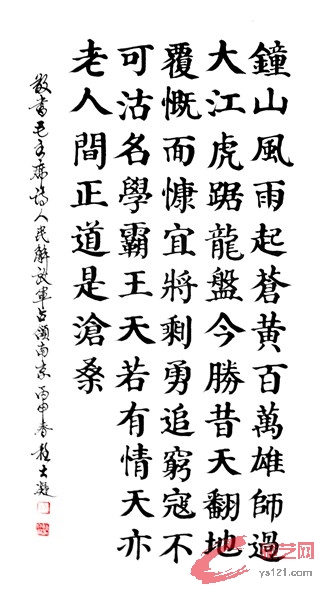 鐘山風雨起蒼黃百萬雄師過
大江虎踞龍盤今勝昔天翻地
覆慨而慷宜將剩勇追窮寇不
可沽名學霸王天若有情天亦
老人間正道是滄桑
敬書毛主席詩人民解放軍占領南京 丙申春
艺网
ys121.com